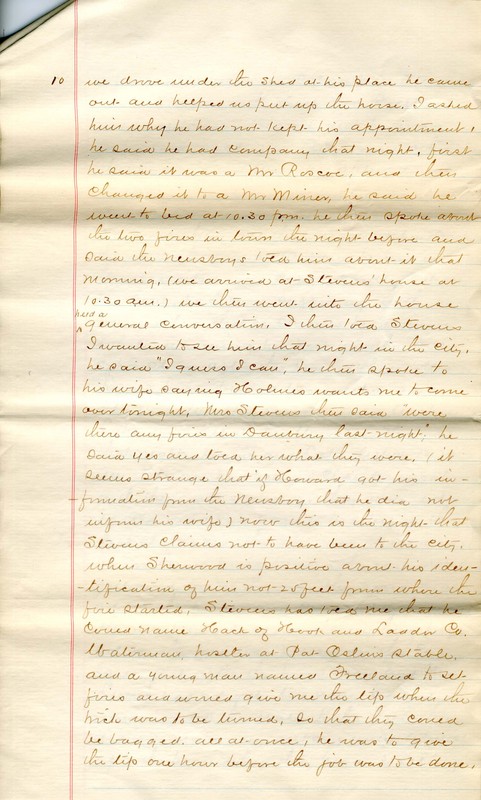 10 we drove under the shed at his place he came
out and helped us put up the horse. I asked
him why he had not kept his appointment,
he said he had company that night, first
he said it was a Mr Roscoe, and then
changed it to a Mr Minor, he said he
went to bed at 10.30 p.m. he then spoke about
the two fires in town the night before and
said the newsboys told him about it that
morning, (we arrived at Stevens' house at
10.30 a.m.) we then went into the house
had a
general conversation, I then told Stevens
I wanted to see him that night in the city,
he said "I guess I can", he then spoke to
his wife saying Holmes wants me to come
over tonight, Mrs Stevens then said "were
there any fires in Danbury last night", he
said yes and told her what they were. (it
seems strange that if Howard got his in-
-formation from the newsboy that he did not
inform his wife) now this is the night that
Stevens claims not to have been to the city.
when Sherwood is positive about his iden-
-tification of him not 25 feet from where the
fire started, Stevens has told me that he
could name Hack of Hook and Ladder Co.
Waterman, hostler at Pat Stable,
and a young man named Freeland to set
fires and would give me the tip when the
trick was to be turned, so that they could
be bagged all at once, he was to give
the tip one hour before the job was to be done.